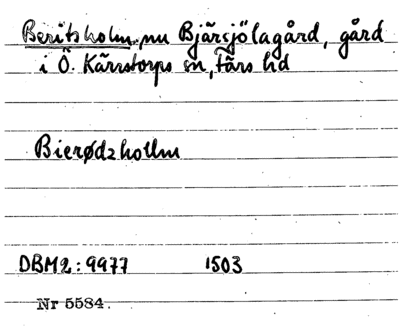 Beritsholm, nu Bjärsjölagård, gård
i Ö. Kärrstorps sn, Färs hd
Bierødzhollm
DBM2: 9977 1503
Nr 5584.